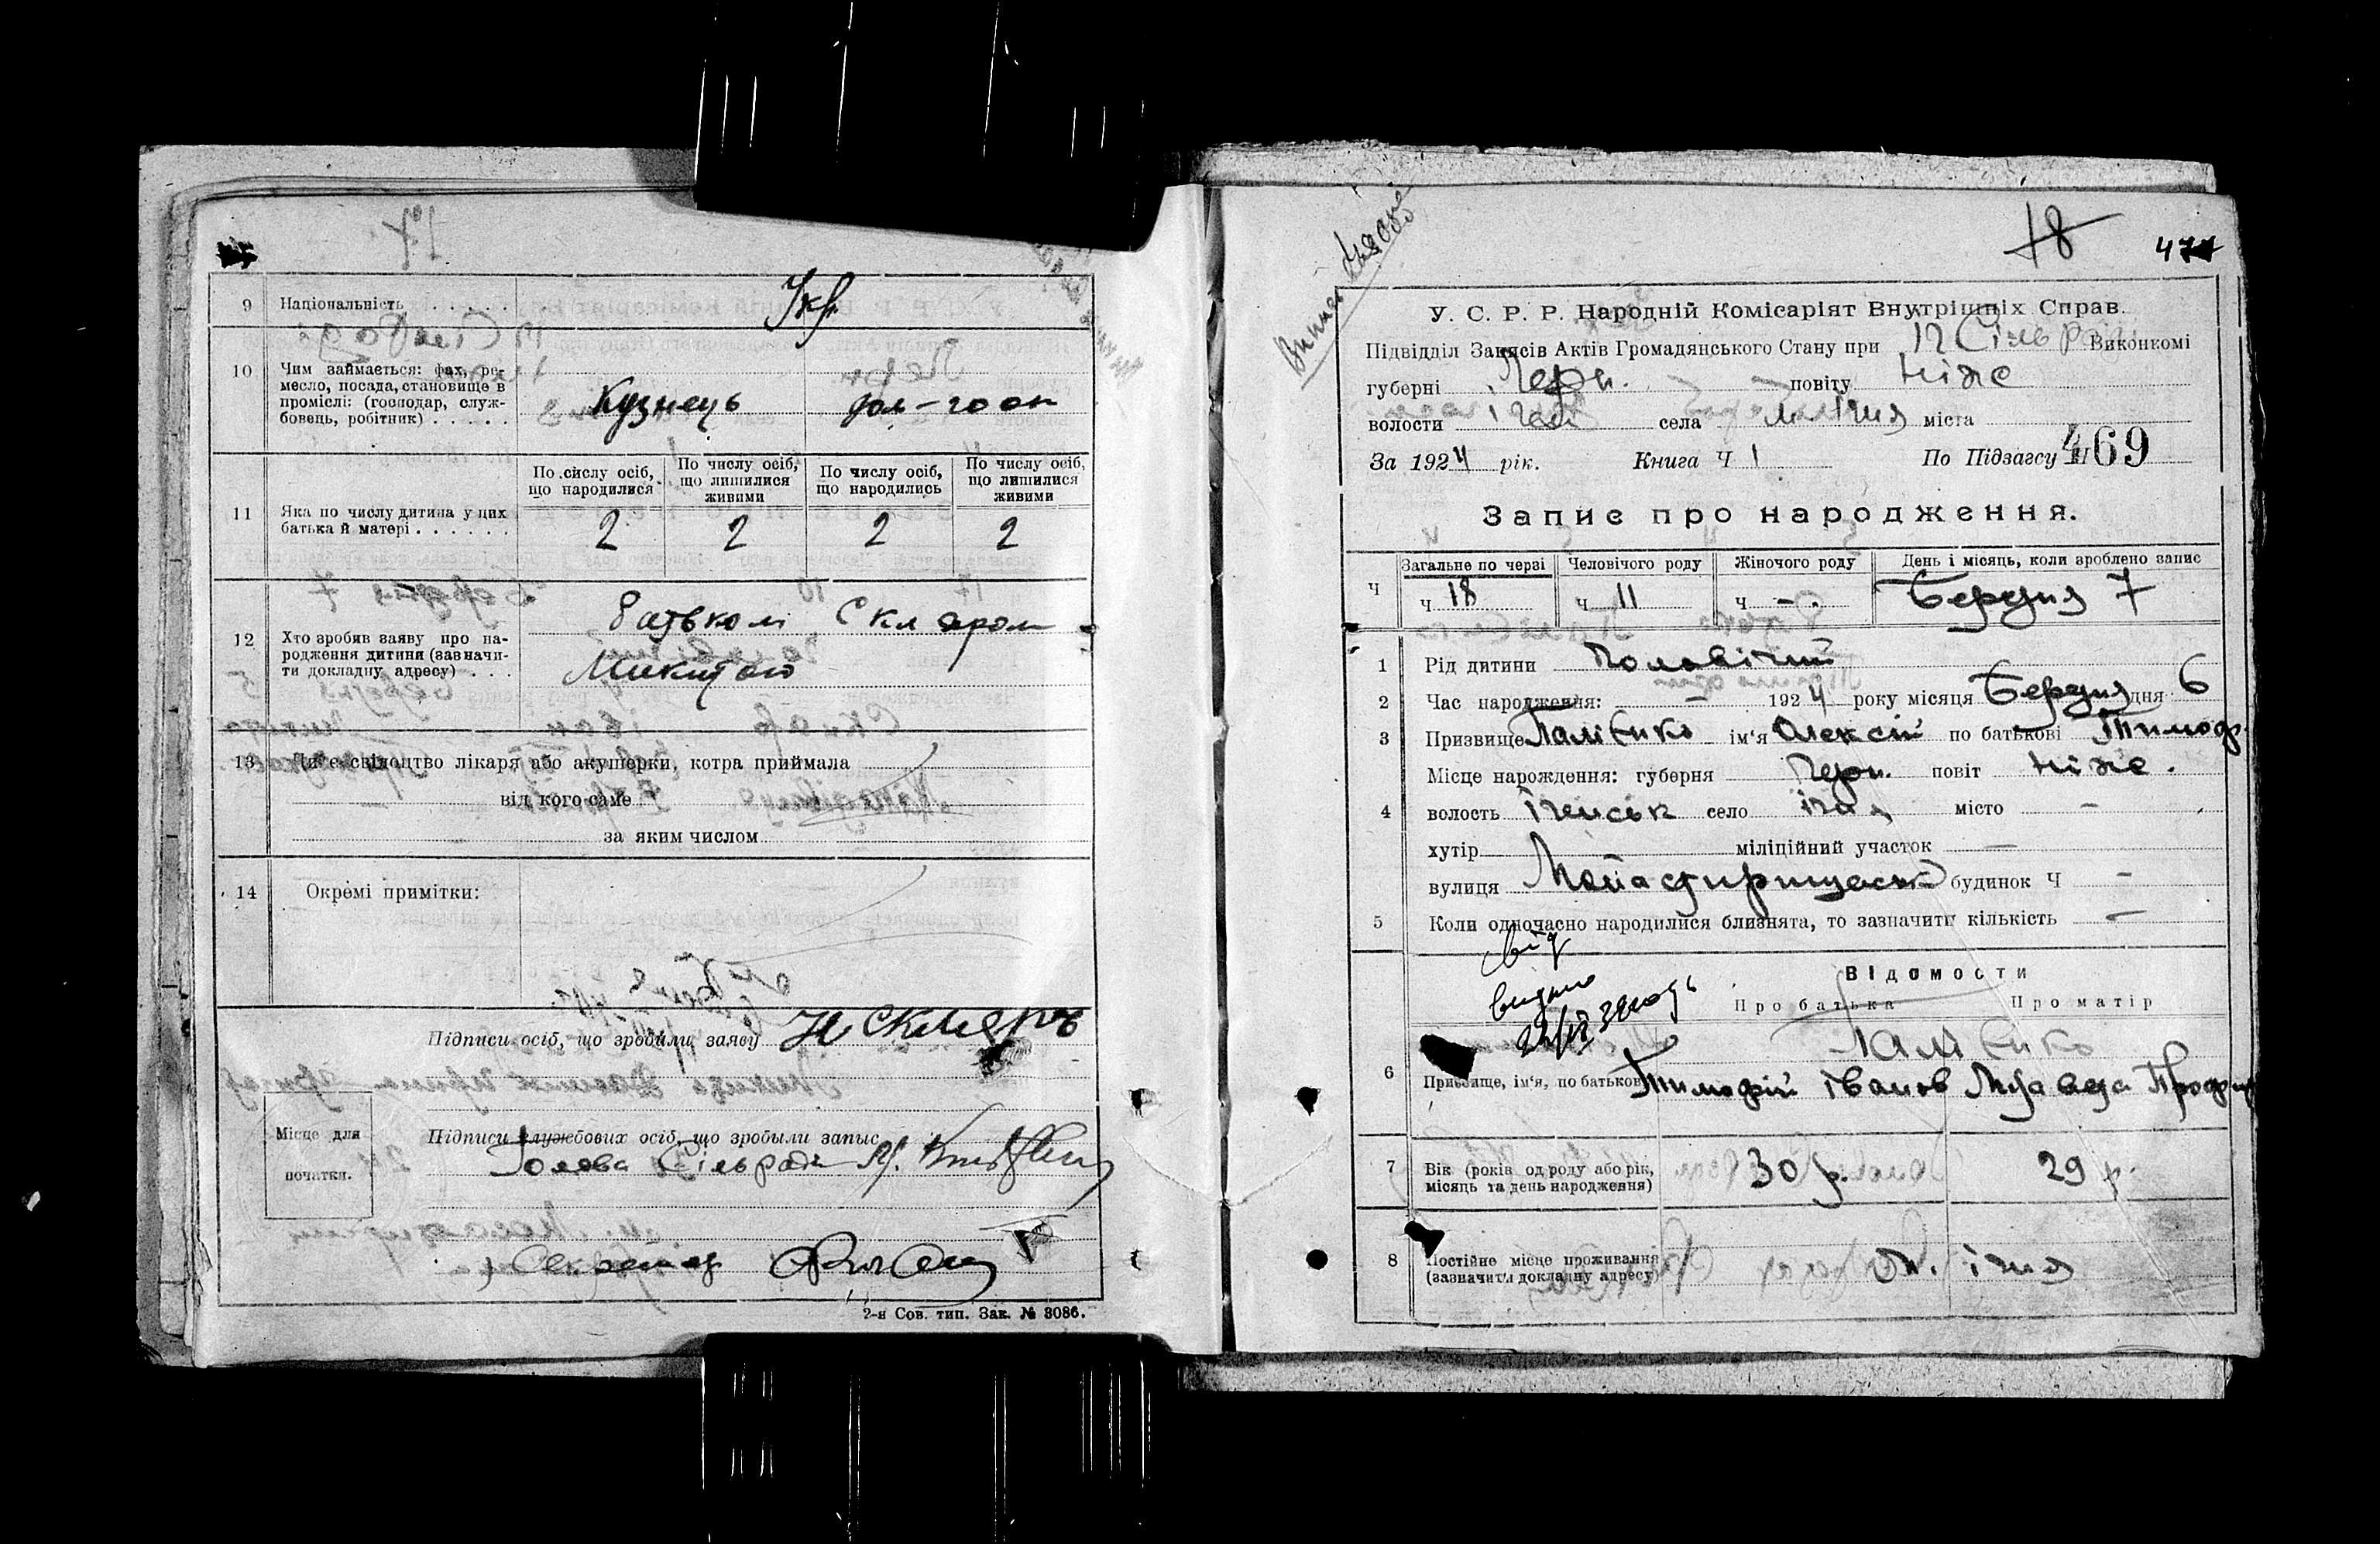 9 Національність . . . . . . Укр.
10 Чим займається: фах, ре-
месло, посада, становище в
промісліі: (господар, служ-
бовець, робітник) . . . . .
Кузнець
По числу осіб, що народилися
По числу осіб, що лишилися живими
По числу осіб, що народились
По числу осіб, що лишилися живими
11 Яка по числу дитина у цих
батька й матері . . . . . .
2 2 2 2
12 Хто зробив заяву про на-
родження дитини (зазначи-
ти докладну адресу) . . .
Батьком Скляром
Микитою
13 Чи є свідоцтво лікаря або акушерки, котра приймала
від кого саме
за яким числом
14 Окремі примітки:
Підписи осіб, що зробили заяву Н Скляръ
Місце для
початки.
Підписи службових осіб, що зробыли запыс
Голова Сільради
Секретар
2-я Сов. тип. Зак. № 3086.
18
У. С. Р. Р. Народній Комісаріят Внутрішніх Справ.
Підвідділ Записів Актів Громадянського Стану при Сільраді Виконкомі
губерні Черн. повіту Ніже
волости Ічен села м. Ічня міста
За 1924 рік. Книга Ч 1 По Підзагсу Ч 469
Запис про народження.
Загальне по черзі Человічого роду Жіночого роду День і місяць, коли зроблено запис
Ч Ч 18 Ч 11 Ч - Березня 7
1 Рід дитини Чоловічий
2 Час народження: 1924 року місяця Березня дня 6
3 Призвище Палієнко ім'я Олексій по батькові Тимоф
Місце нарождення: губерня Черн. повіт Ніже.
4 волость Іченськ село Ічня місто -
хутір міліційний участок —
вулиця Монастирищеська будинок Ч —
5 Коли одночасно народилися близнята, то зазначити кількість —
Відомости
Про батька Про матір
від
видано
Палієнко
6 Призвище, ім'я, по батькові Тимофій Іванов
7 Вік (років од роду або рік,
місяць та день народження)
30 р. 29 р.
8 Постійне місце проживання
(зазначити докладну адресу)
м. Ічня